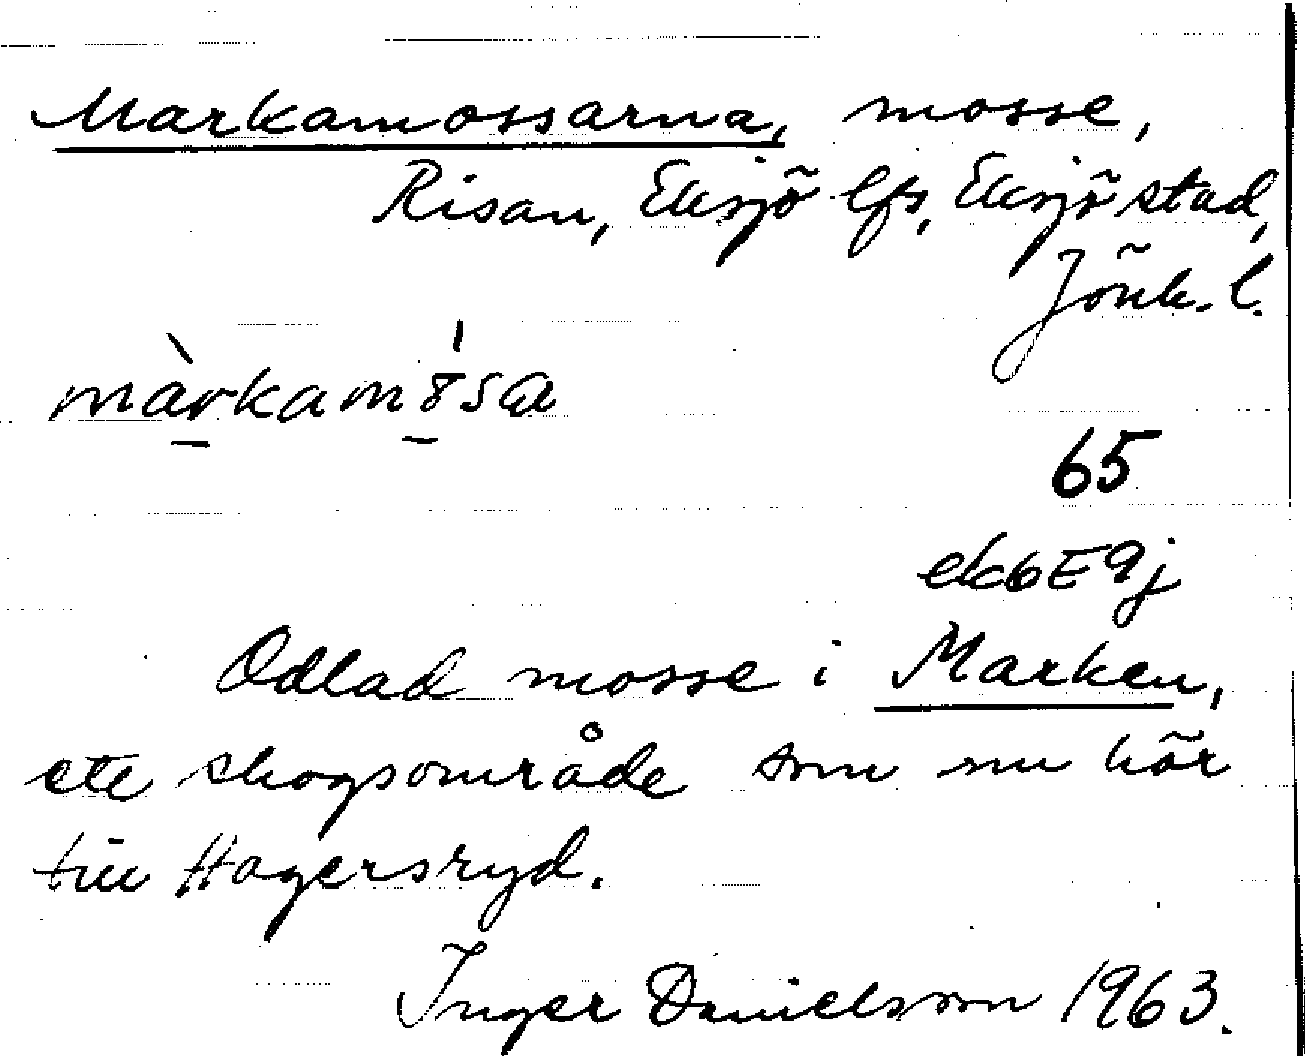 Markamossarna, mosse,
Risan, Eksjö lfs, Eksjö stad,
Jönk. l.
màrkamɤ́sa
65
ek6E9j
Odlad mosse i Marken,
ett skogsområde som nu hör
till Hagersryd.
Inger Danielsson 1963.